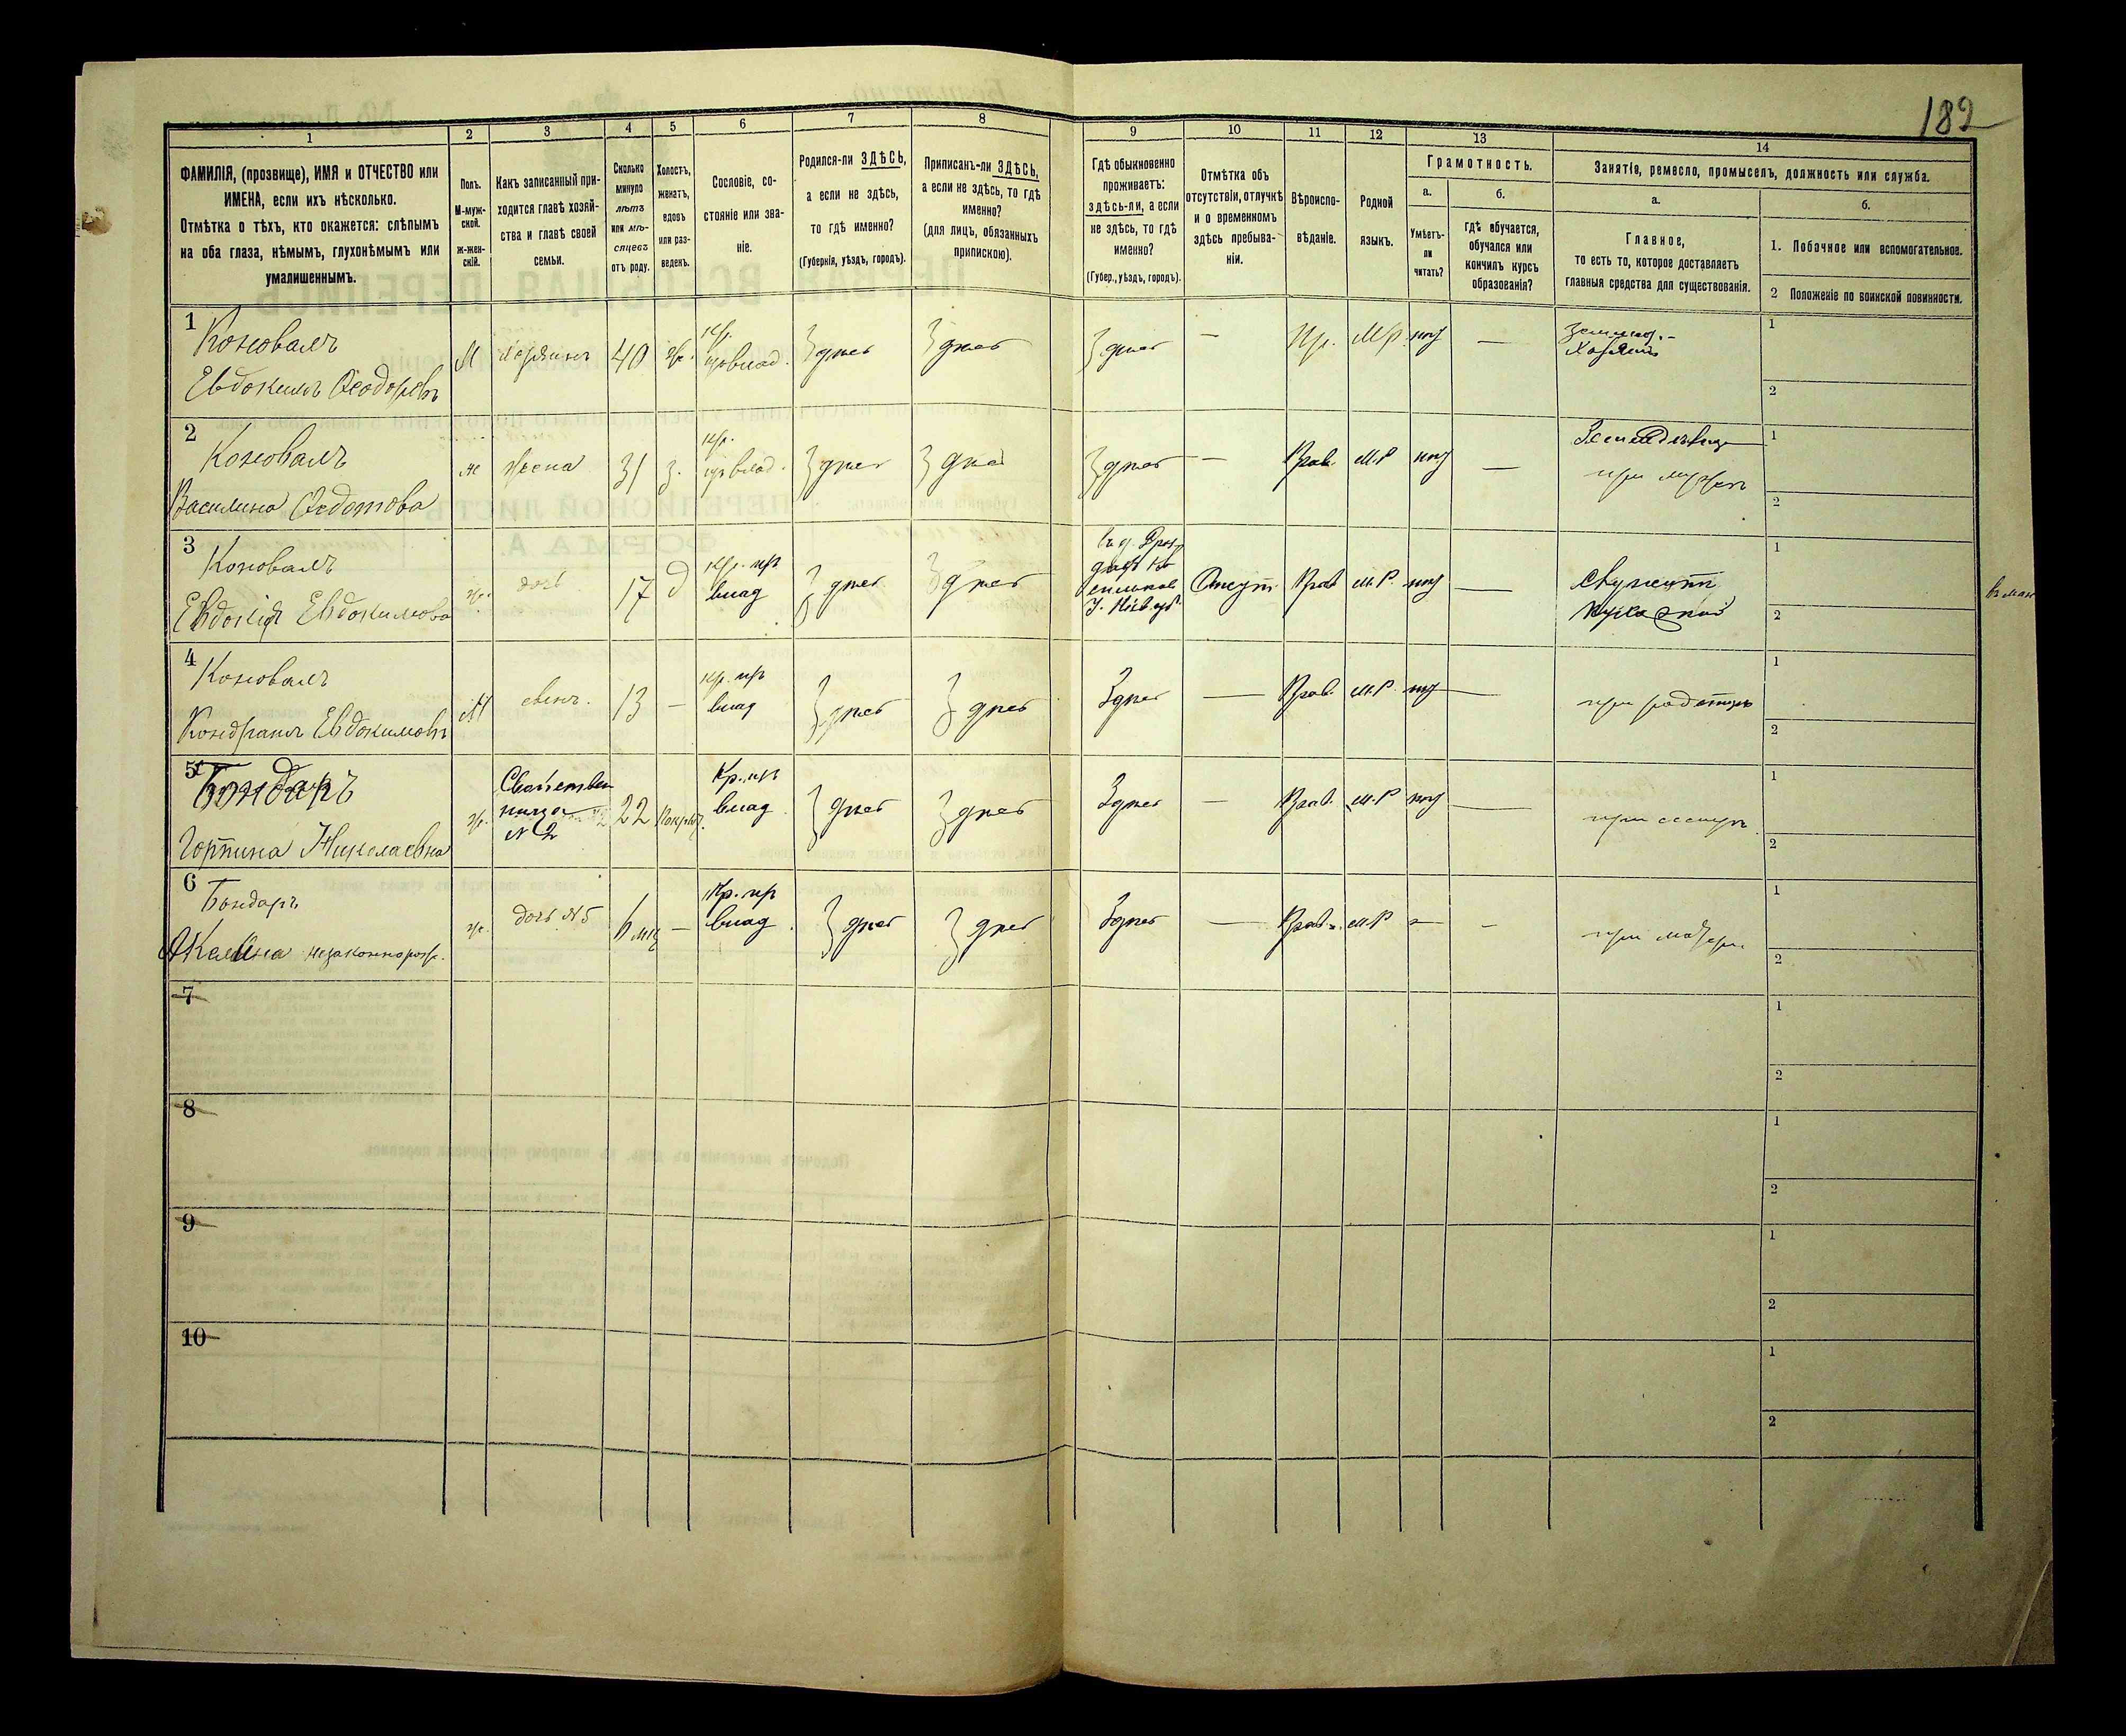 182
1 2 3 4 5 6 7 8 9 10 11 12 13 14
ФАМИЛІЯ, (прозвище), ИМЯ и ОТЧЕСТВО или
ИМЕНА, если ихъ нѣсколько.
Отмѣтка о тѣхъ, кто окажется: слѣпымъ
на оба глаза, нѣмымъ, глухонѣмымъ или
умалишеннымъ.
Полъ.
М-муж-
ской.
ж-жен-
скій.
Какъ записанный при-
ходится главѣ хозяй-
ства и главѣ своей
семьи.
Сколько
минуло
лѣтъ
или мѣ-
сяцевъ
отъ роду.
Холостъ,
женатъ,
вдовъ
или раз-
веденъ.
Сословіе, со-
стояніе или зва-
ніе.
Родился-ли ЗДѢСЬ,
а если не здѣсь,
то гдѣ именно?
(Губернія, уѣздъ, городъ).
Приписанъ-ли ЗДѢСЬ,
а если не здѣсь, то гдѣ
именно?
(для лицъ, обязанныхъ
припискою).
Гдѣ обыкновенно
проживаетъ:
здѣсь-ли, а если
не здѣсь, то гдѣ
именно?
(Губер., уѣздъ, городъ).
Отмѣтка объ
отсутствіи, отлучкѣ
и о временномъ
здѣсь пребыва-
ніи.
Вѣроиспо-
вѣданіе.
Родной
языкъ.
Грамотность.
а.
Умѣетъ-
ли
читать?
б.
Гдѣ обучается,
обучался или
кончилъ курсъ
образованія?
Занятія, ремесло, промыселъ, должность или служба.
а.
Главное,
то есть то, которое доставляетъ
главныя средства для существованія.
б.
1. Побочное или вспомогательное.
2 Положеніе по воинской повинности.
1
Коновалъ
Евдокимъ Ѳеодоровъ
М
Хозяинъ
40
ж.
кр.
здѣсь
здѣсь
здѣсь
—
Пр.
М.р.
нѣт
—
Хозяинъ
1
2
2
Коновалъ
Василина Ѳедотова
ж
жена
31
з.
кр.
здѣсь
здѣсь
здѣсь
—
Прав.
М.Р
нѣт
—
при мужѣ
1
2
3
Коновалъ
Евдокія Евдокимова
ж.
дочь
17
д
влад
здѣсь
здѣсь
Отсут.
Прав
М.Р.
нѣт
—
1
2
4
Коновалъ
Кондратъ Евдокимовъ
М
сынъ.
13
—
влад
здѣсь
здѣсь
здѣсь
—
Прав.
М.Р.
нѣт
—
при
1
2
5
Бондаръ
Горпина Николаевна
ж.
Свойствен
ница
N 2
22
влад
здѣсь
здѣсь
здѣсь
—
Прав.
М.Р
нѣт
—
при сестрѣ
1
2
6
Бондаръ
Акелина незаконнорож.
ж.
дочь N 5
6 мц
—
влад
здѣсь
здѣсь
здѣсь
—
Прав.
М.Р
—
—
при матери
1
2
7
1
2
8
1
2
9
1
2
10
1
2